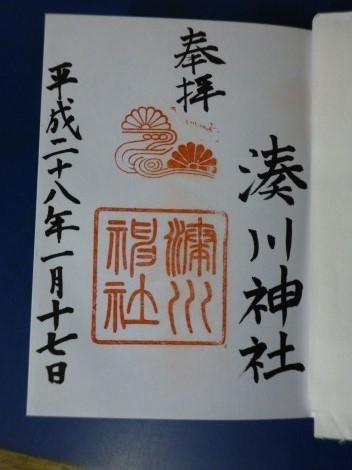 奉拝
湊川神社
湊川
神社
平成二十八年一月十七日